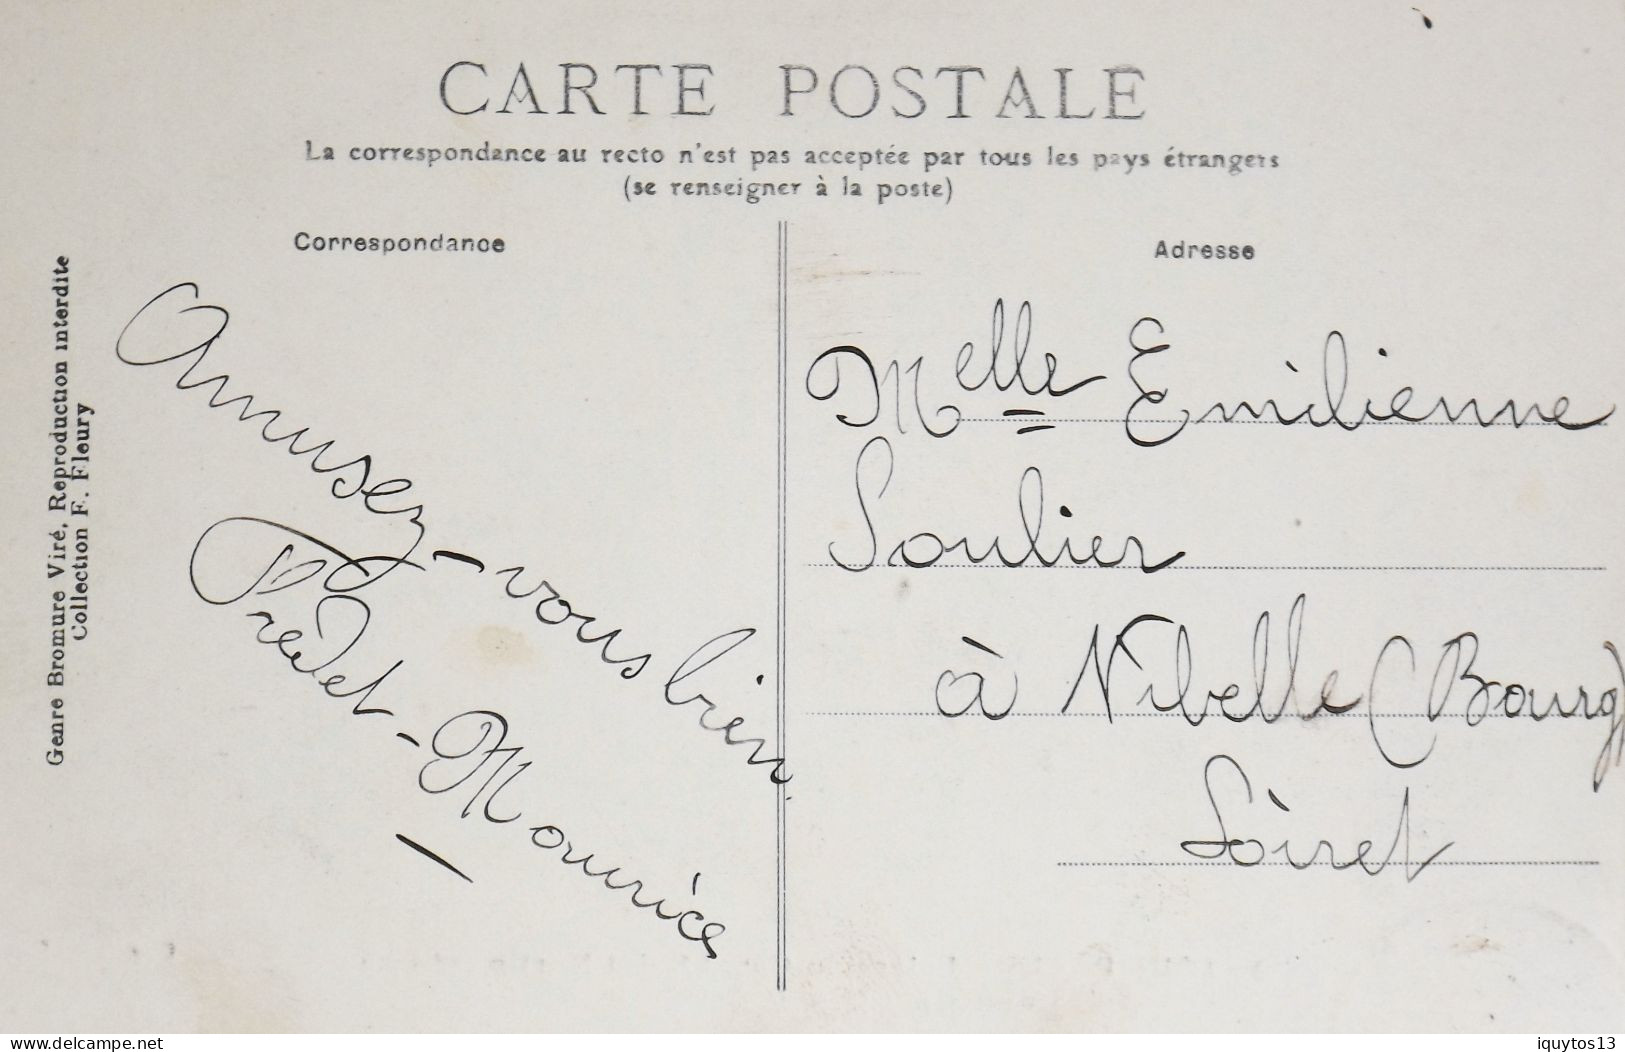 CARTE POSTALE
La correspondance au recto n'est pas acceptée par tous les pays étrangers
(se renseigner à la poste)
Correspondance
Amusez-vous bien.
Maurice
Adresse
Melle Emilienne
Soulier
à Nibelle (Bourg)
Loiret
Genre Bromure Viré, Reproduction interdite
Collection F. Fleury
delcampe.net
iquytos13